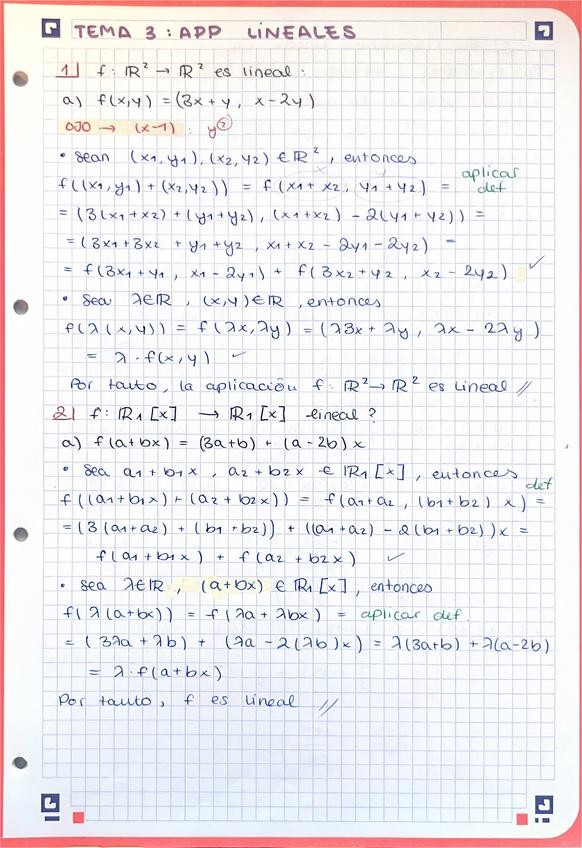 TEMA 3 : APP LINEALES
1) f: ℝ² → ℝ² es lineal :
a) f(x,y) = (3x + y , x - 2y)
OJO → (x-1) : y²
• Sean (x₁, y₁), (x₂, y₂) ∈ ℝ² , entonces
f((x₁, y₁) + (x₂, y₂)) = f(x₁ + x₂, y₁ + y₂) = aplicar def
= (3(x₁ + x₂) + (y₁ + y₂), (x₁ + x₂) - 2(y₁ + y₂)) =
= (3x₁ + 3x₂ + y₁ + y₂ , x₁ + x₂ - 2y₁ - 2y₂) =
= f(3x₁ + y₁ , x₁ - 2y₁) + f(3x₂ + y₂ , x₂ - 2y₂) ✓
• Sea λ∈ℝ , (x,y)∈ℝ , entonces
f(λ(x,y)) = f(λx, λy) = (λ3x + λy , λx - 2λy)
= λ · f(x,y) ✓
Por tanto, la aplicación f: ℝ² → ℝ² es lineal //
2) f: ℝ₁[x] → ℝ₁[x] lineal ?
a) f(a+bx) = (3a+b) + (a-2b)x
• Sea a₁ + b₁x , a₂ + b₂x ∈ ℝ₁[x] , entonces
f((a₁+b₁x) + (a₂ + b₂x)) = f(a₁+a₂ , (b₁+b₂) x) = def
= (3(a₁+a₂) + (b₁+b₂)) + ((a₁+a₂) - 2(b₁+b₂))x =
f(a₁ + b₁x) + f(a₂ + b₂x) ✓
• Sea λ∈ℝ , (a+bx) ∈ ℝ₁[x] , entonces
f(λ(a+bx)) = f(λa + λbx) = aplicar def.
= (3λa + λb) + (λa - 2(λb)x) = λ(3a+b) + λ(a-2b)
= λ · f(a+bx)
Por tanto, f es lineal //